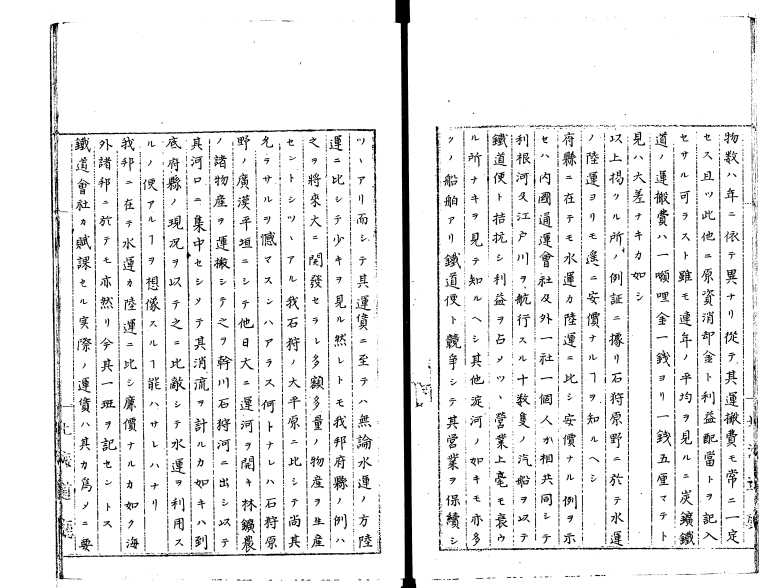 物数ハ年ニ依テ異ナリ從テ其運搬費モ常ニ一定
セス且ツ此他ニ原資消却金ト利益配當トヲ記入
セサル可ラスト雖モ連年ノ平均ヲ見ルニ炭鑛鐵
道ノ運搬費ハ一噸哩金一銭ヨリ一銭五厘マテト
見ハ大差ナキカ如シ
以上揭クル所ノ例証ニ據リ石狩原野ニ於テ水運
ノ陸運ヨリモ遙ニ安價ナルヿヲ知ルヘシ
府縣ニ在テモ水運カ陸運ニ比シ安價ナル例ヲ示
セハ内國通運會社及外一社一個人カ相共同シテ
利根河又江戸川ヲ航行スル十数隻ノ汽船ヲ以テ
鐵道便ト拮抗シ利益ヲ占メツヽ營業上毫モ衰ウ
ル所ナキヲ見テ知ルヘシ其他淀河ノ如キモ亦多
クノ船舶アリ鐵道便ト競争シテ其営業ヲ保續シ
ツヽアリ而シテ其運賃ニ至テハ無論水運ノ方陸
運ニ比シテ少キヲ見ル然レトモ我邦府縣ノ例ハ
之ヲ將來大ニ開發セラレ多額多量ノ物産ヲ生産
セントシツヽアル我石狩ノ大平原ニ比シテ尚其
允ラサルヲ憾マスンハアラス何トナレハ石狩原
野ノ廣漠平垣ニシテ他日大ニ運河ヲ開キ林鑛農
ノ諸物産ヲ運搬シテ之ヲ幹川石狩河ニ出シ以テ
其河口ニ集中セシメテ其消流ヲ計ルカ如キハ到
底府縣ノ現況ヲ以テ之ニ比敵シテ水運ヲ利用ス
ルノ便アルヿヲ想像スルヿ能ハサレハナリ
我邦ニ在テ水運カ陸運ニ比シ廉價ナルカ如ク海
外諸邦ニ於テモ亦然リ今其一班ヲ記セントス
鐵道會社カ賦課セル実際ノ運賃ハ其カ爲メニ要